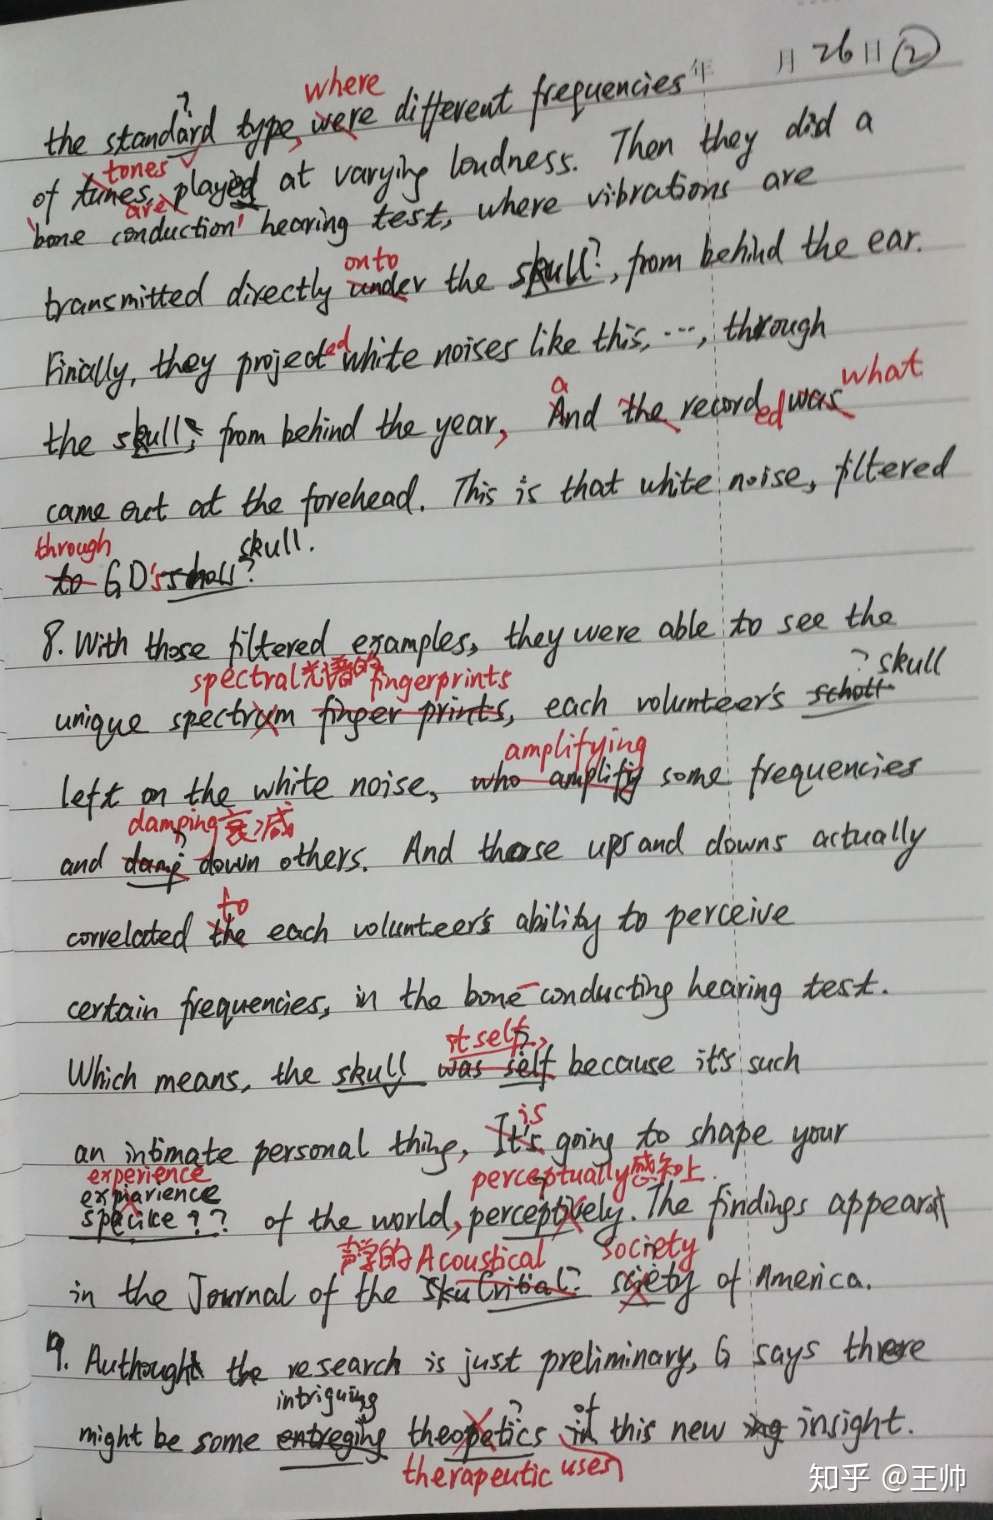 年 月 26日 ②
where
the standard type, were different frequencies
tones
of tunes, played at varying loudness. Then they did a
are
'bone conduction' hearing test, where vibrations are
onto
transmitted directly under the skull?, from behind the ear.
Finially, they projected white noises like this, ..., through
a what
the skull, from behind the year, And the recorded was
came out at the forehead. This is that white noise, filtered
through skull.
to GD's scholl?
8. With those filtered examples, they were able to see the
spectral光谱的 fingerprints ? skull
unique spectrum finger prints, each volunteer's scholl
amplifying
left on the white noise, who amplify some frequencies
damping衰减
and damp down others. And those ups and downs actually
to
correlated the each volunteer's ability to perceive
certain frequencies, in the bone-conducting hearing test.
itself,
Which means, the skull was self because it's such
is
an intimate personal thing, It's going to shape your
experience perceptually感知上
expiarience
specice?? of the world, perceptively. The findings appeared
声学的 Acoustical society
in the Journal of the Skucritial? sciety of America.
9. Authought the research is just preliminary, G says there
intriguing of
might be some entreging theopetics in this new insight.
therapeutic uses
知乎 @王帅